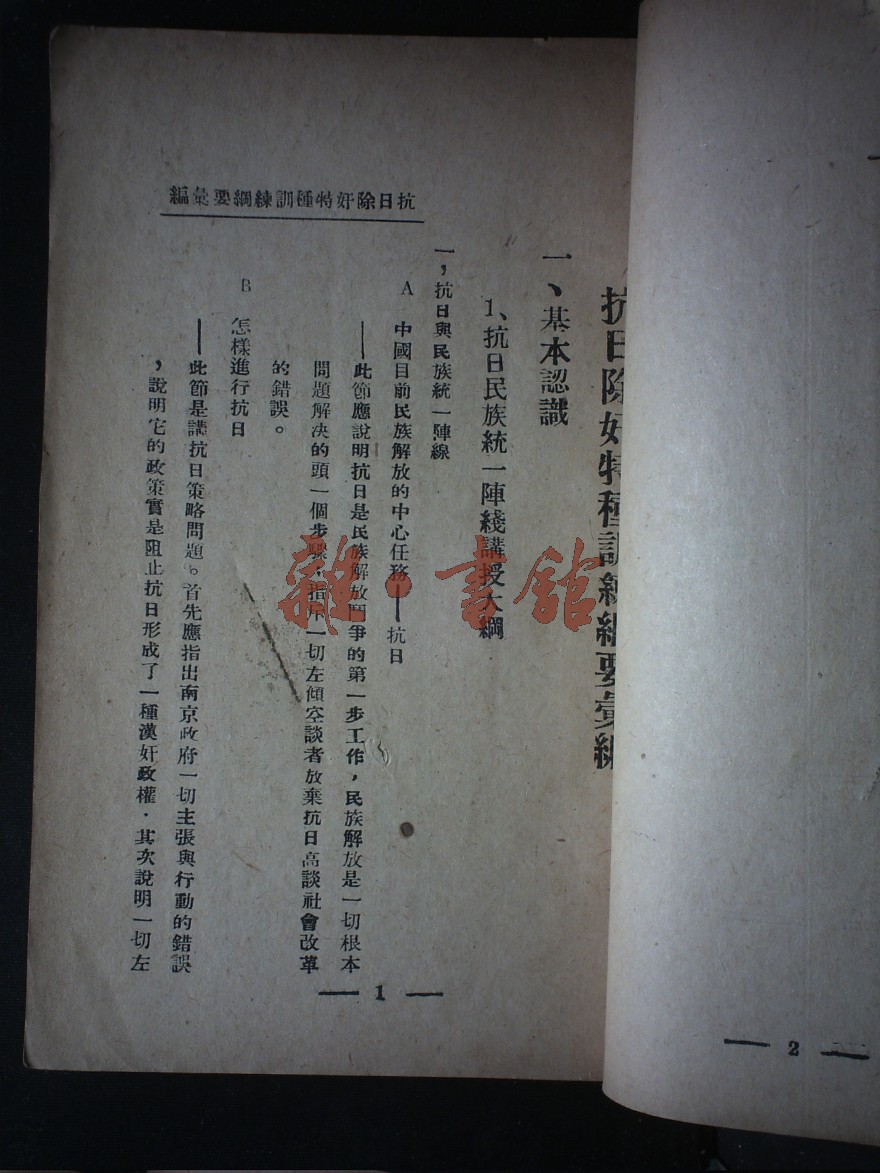 抗日除奸特種訓練綱要彙編
抗日除奸特種訓練綱要彙編
一、基本認識
1、抗日民族統一陣綫講授大綱
一，抗日與民族統一陣線
A 中國目前民族解放的中心任務——抗日
——此節應說明抗日是民族解放鬥爭的第一步工作，民族解放是一切根本
問題解决的頭一個步驟，指斥一切左傾空談者放棄抗日高談社會改革
的錯誤。
B 怎樣進行抗日
——此節是講抗日策略問題。首先應指出南京政府一切主張與行動的錯誤
，說明它的政策實是阻止抗日形成了一種漢奸政權．其次說明一切左
— 1 —
— 2 —
雜·書館